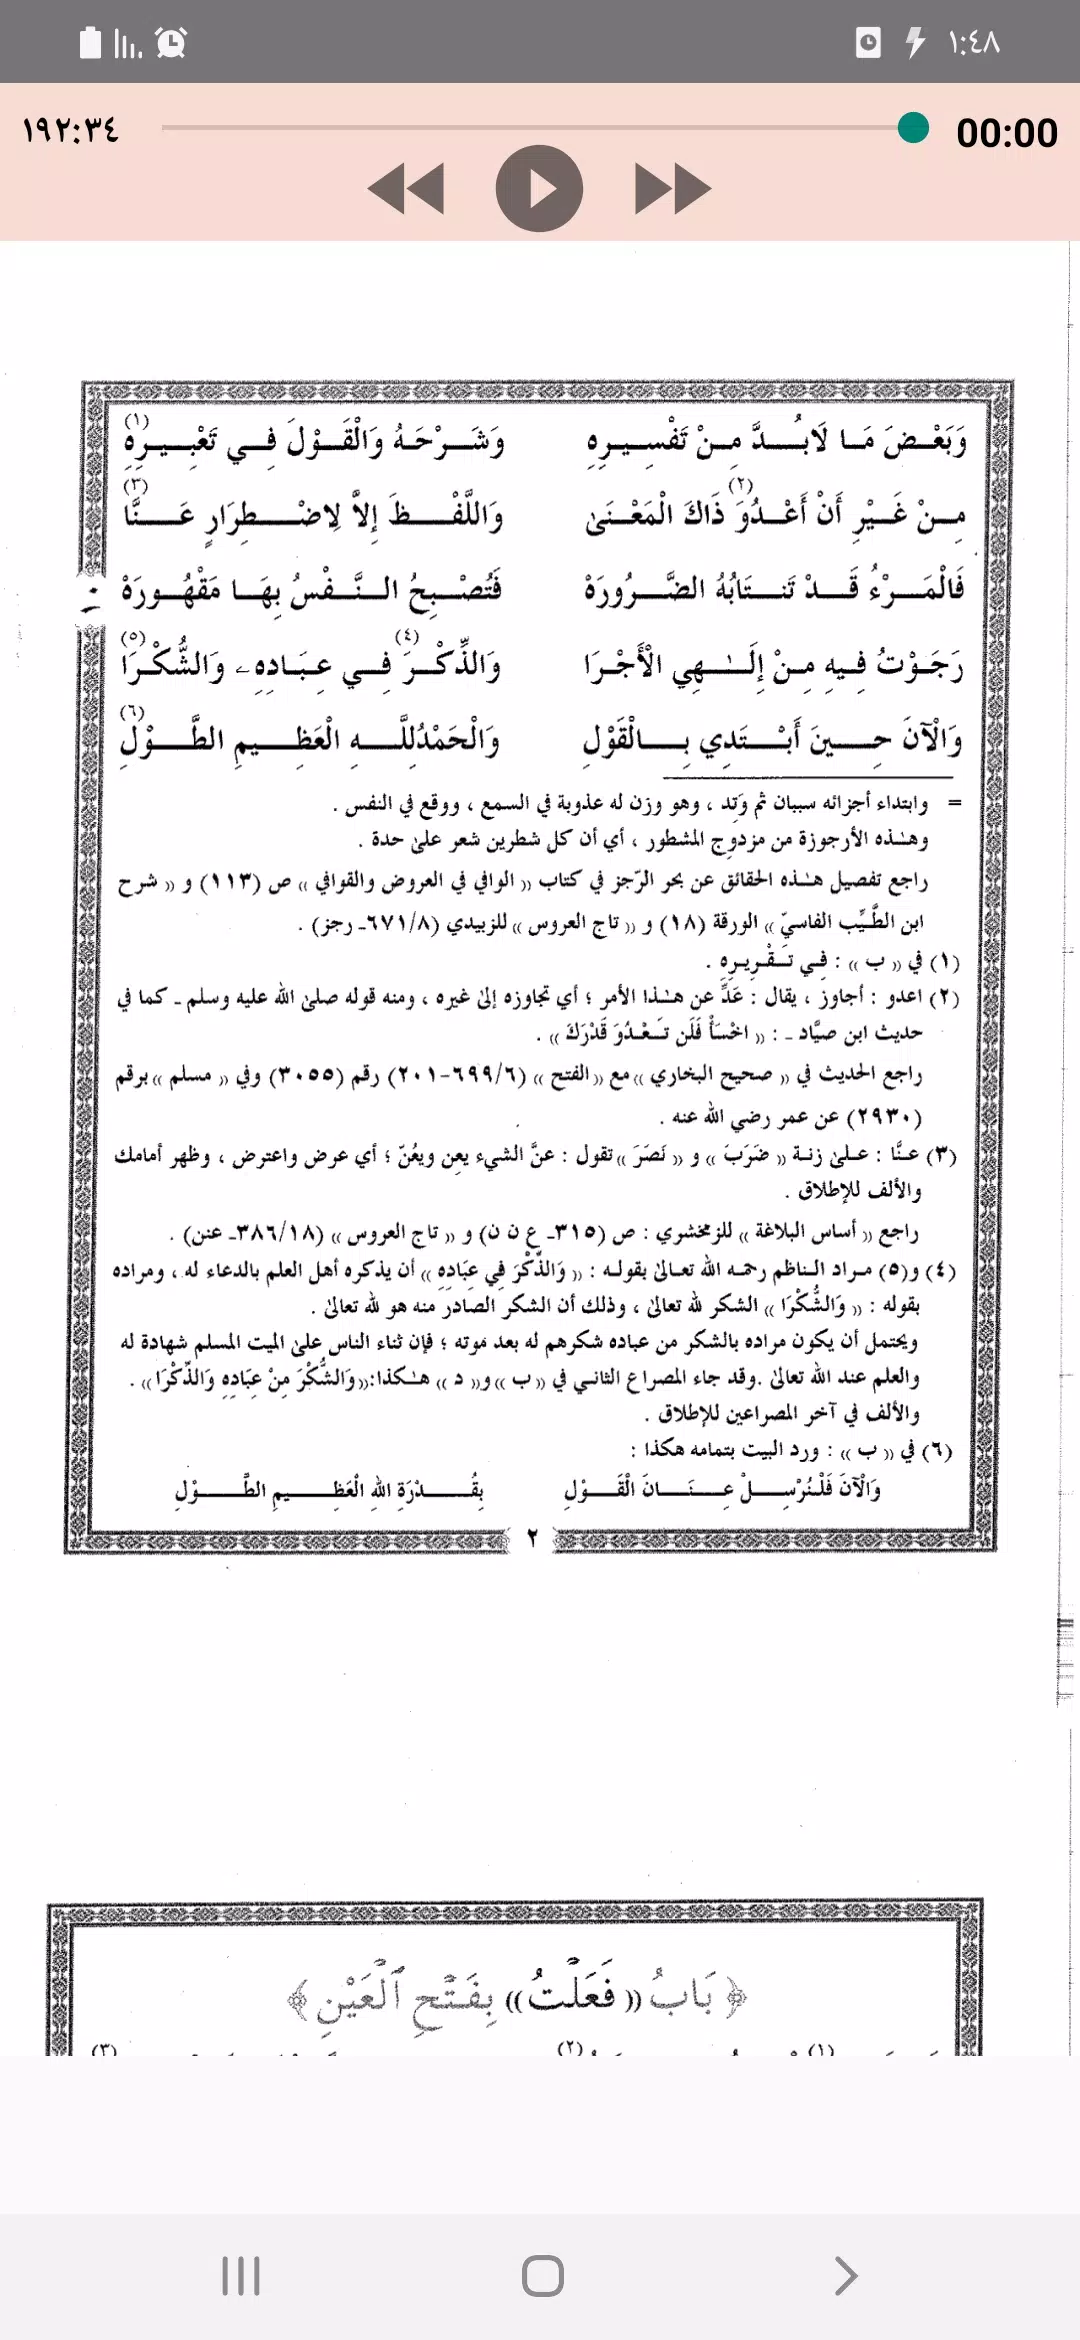 ١:٤٨
١٩٢:٣٤ 00:00
وَبَعْضَ مَا لَابُدَّ مِنْ تَفْسِيرِهِ وَشَرْحَهُ وَالْقَوْلَ فِي تَعْبِيرِهِ (١)
مِنْ غَيْرِ أَنْ أَعْدُوَ (٢) ذَاكَ الْمَعْنَىٰ وَاللَّفْظَ إِلاَّ لِاضْطِرَارٍ عَنَّا (٣)
فَالْمَرْءُ قَدْ تَنتَابُهُ الضَّرُورَهْ فَتُصْبِحُ النَّفْسُ بِهَا مَقْهُورَهْ
رَجَوْتُ فِيهِ مِنْ إِلَـٰهِي الْأَجْرَا وَالذِّكْرَ (٤) فِي عِبَادِهِ وَالشُّكْرَا (٥)
وَالْآنَ حِينَ أَبْتَدِي بِالْقَوْلِ وَالْحَمْدُلِلَّهِ الْعَظِيمِ الطَّوْلِ (٦)
= وابتداء أجزائه سببان ثم وَتِد ، وهو وزن له عذوبة في السمع ، ووقع في النفس .
وهـٰذه الأرجوزة من مزدوج المشطور ، أي أن كل شطرين شعر علىٰ حدة .
راجع تفصيل هـٰذه الحقائق عن بحر الرّجز في كتاب « الوافي في العروض والقوافي » ص (١١٣) و « شرح
ابن الطَّيِّب الفاسيّ » الورقة (١٨) و « تاج العروس » للزبيدي (٦٧١/٨ـ رجز) .
(١) في « ب » : فِي تَقْرِيرِهِ .
(٢) اعدو : أجاوز ، يقال : عَدِّ عن هـٰذا الأمر ؛ أي تجاوزه إلىٰ غيره ، ومنه قوله صلىٰ الله عليه وسلم ـ كما في
حديث ابن صيَّاد ـ : « اخْسَأْ فَلَن تَعْدُوَ قَدْرَكَ » .
راجع الحديث في « صحيح البخاري » مع « الفتح » (٦/ ٦٩٩-٢٠١) رقم (٣٠٥٥) وفي « مسلم » برقم
(٢٩٣٠) عن عمر رضي الله عنه .
(٣) عنَّا : علىٰ زنة « ضَرَبَ » و « نَصَرَ » تقول : عنَّ الشيء يعِن ويعُنّ ؛ أي عرض واعترض ، وظهر أمامك
والألف للإطلاق .
راجع « أساس البلاغة » للزمخشري : ص (٣١٥ـ ع ن ن) و « تاج العروس » (٣٨٦/١٨ـ عنن) .
(٤) و(٥) مراد الناظم رحمه الله تعالىٰ بقوله : « وَالذِّكْرَ فِي عِبَادِهِ » أن يذكره أهل العلم بالدعاء له ، ومراده
بقوله : « وَالشُّكْرَا » الشكر لله تعالىٰ ، وذلك أن الشكر الصادر منه هو لله تعالىٰ .
ويحتمل أن يكون مراده بالشكر من عباده شكرهم له بعد موته ؛ فإن ثناء الناس علىٰ الميت المسلم شهادة له
والعلم عند الله تعالىٰ .وقد جاء المصراع الثاني في « ب » و« د » هـٰكذا:« وَالشُّكْرَ مِنْ عِبَادِهِ وَالذِّكْرَا » .
والألف في آخر المصراعين للإطلاق .
(٦) في « ب » : ورد البيت بتمامه هكذا :
وَالْآنَ فَلْنُرْسِلْ عِنَانَ الْقَوْلِ بِقُدْرَةِ اللهِ الْعَظِيمِ الطَّوْلِ
٢
﴿ بَابُ « فَعَلْتُ » بِفَتْحِ الْعَيْنِ ﴾
(١) (٢) (٣)